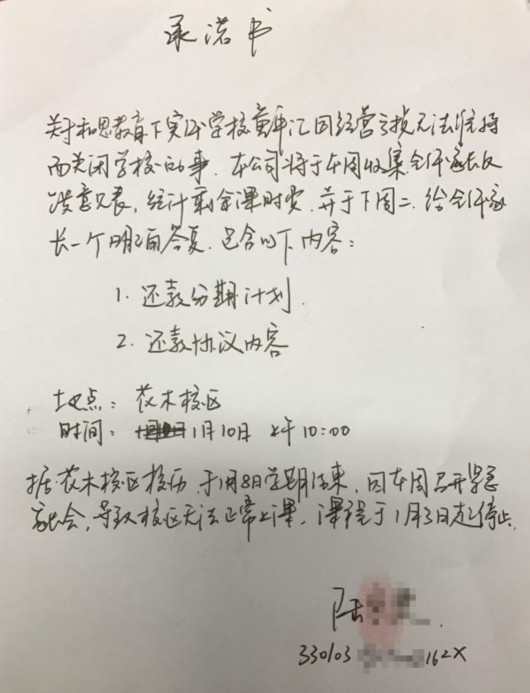 承诺书
关于和思教育下实体学校黄浦汇因经营亏损无法维持
而关闭学校的事。本公司将于本周收集全体家长反
馈意见表，统计剩余课时费，并于下周二，给全体家
长一个明确答复，包含以下内容：
1. 还款分期计划
2. 还款协议内容
地点：花木校区
时间：1月10日 上午10:00
据花木校区校历，于1月8日学期结束，因本周召开紧急
家长会，导致校区无法正常上课，课程于1月3日起停止。
陆
330103 162X